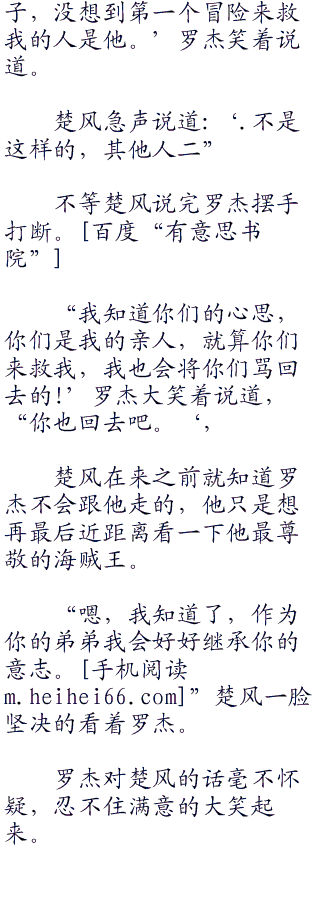 子，没想到第一个冒险来救
我的人是他。’罗杰笑着说
道。
楚风急声说道：‘.不是
这样的，其他人二”
不等楚风说完罗杰摆手
打断。[百度“有意思书
院”]
“我知道你们的心思，
你们是我的亲人，就算你们
来救我，我也会将你们骂回
去的!’罗杰大笑着说道，
“你也回去吧。‘，
楚风在来之前就知道罗
杰不会跟他走的，他只是想
再最后近距离看一下他最尊
敬的海贼王。
“嗯，我知道了，作为
你的弟弟我会好好继承你的
意志。[手机阅读
m.heihei66.com]”楚风一脸
坚决的看着罗杰。
罗杰对楚风的话毫不怀
疑，忍不住满意的大笑起
来。